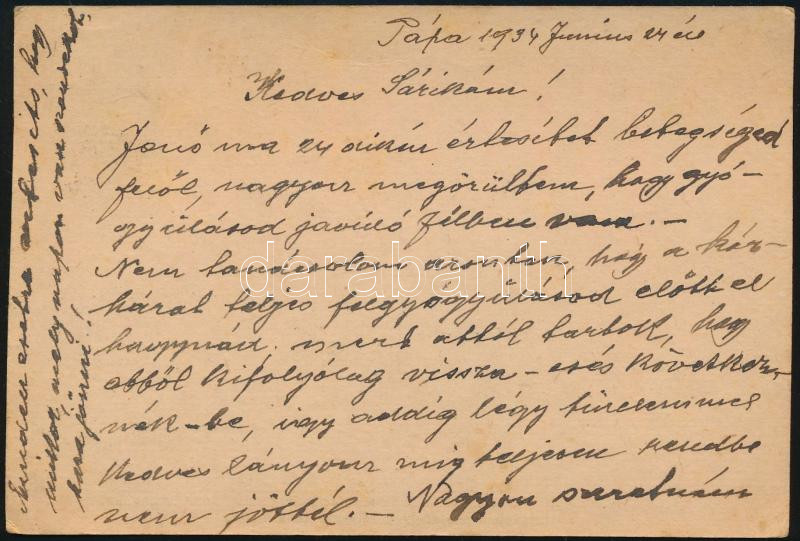 Pápa 1934 Junius 24 én
Kedves Sárikám!
Jenő ma 24 dikén értesített betegséged
felől, nagyon megörültem, hogy gyó-
gyúlásod javúló félben van. —
Nem tanácsolom azonban, hogy a kór-
házat teljes felgyógyúlásod előtt el
hagynád. mert attól tartok, hogy
ebből kifolyólag vissza-esés következ-
nék-be, így addig légy türelemmel
Kedves lányom míg teljesen rendbe
nem jöttél. — Nagyon szeretném
Minden esetre értesíts, hogy
mely napon van szándékod
haza jönni!
darabanth